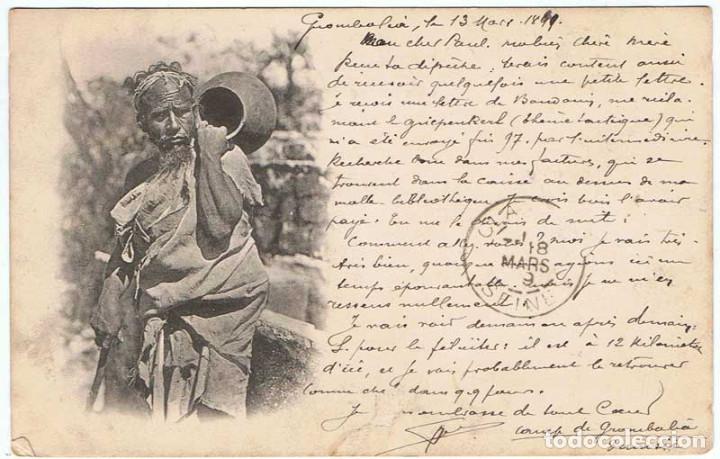 Grombalia, le 13 Mars 1899.
Mon cher Paul. ma bien chère mère
Reçu ta dépêche; serais content aussi
de recevoir quelquefois une petite lettre.
Je reçois une lettre de me récla-
mant le Griepenkerl qui
m'a été envoyé fin 97. par l'intermédiaire.
Recherche donc dans mes factures, qui se
trouvent dans la caisse au dessus de ma
malle bibliothèque, je crois bien l'avoir
payé.
Comment allez vous? moi je vais très
très bien, quoique ayons ici un
temps épouvantable mais je ne m'en
ressens nullement.
Je vais voir demain ou après demain
S. pour le féliciter: il est à 12 kilomètres
d'ici, et je vais probablement le retrouver
dans qq jours.
Je embrasse de tout Coeur
camp de Grombalia
18
MARS
SEINE
todocoleccion